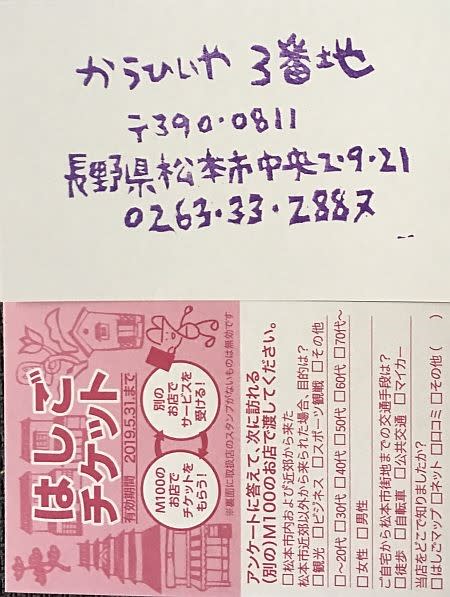 からひぃや 3番地
〒390・0811
長野県松本市中央2・9・21
0263・33・2887
はしご
チケット
有効期間 2019.5.31まで
M100の
お店で
チケットを
もらう!
別の
お店で
サービスを
受ける!
※裏面に取扱店のスタンプがないものは無効です
アンケートに答えて、次に訪れる
(別の)M100のお店で渡してください。
□松本市内および近郊から来た
松本市近郊以外から来られた場合、目的は?
□観光 □ビジネス □スポーツ観戦 □その他
□〜20代 □30代 □40代 □50代 □60代 □70代〜
□女性 □男性
ご自宅から松本市街地までの交通手段は?
□徒歩 □自転車 □公共交通 □マイカー
当店をどこで知りましたか?
□はしごマップ □ネット □口コミ □その他( )